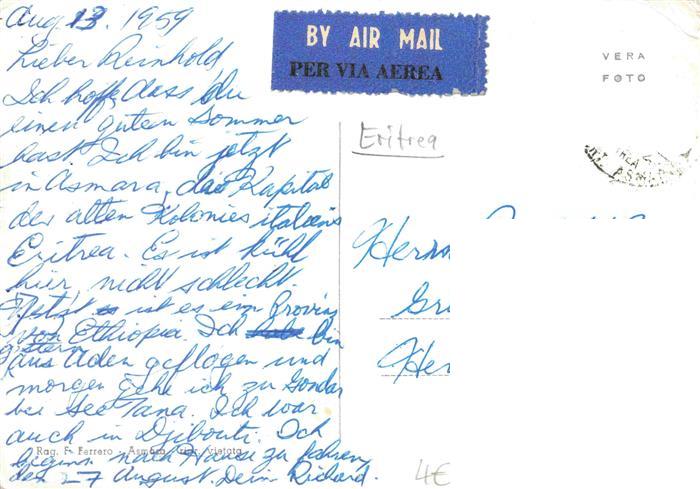 Aug 13. 1959
Lieber Reinhold,
Ich hoffe dass du
einen guten Sommer
hast. Ich bin jetzt
in Asmara, die Kapital
der alten Kolonies italiens
Eritrea. Es ist kühl
hier, nicht schlecht.
Jetzt ist es ein Provinz
von Ethiopia. Ich bin
gestern
aus Aden geflogen und
morgen gehe ich zu Gondar
bei See Tana. Ich war
auch in Djibouti. Ich
Rag. F. Ferrero - Asmara - Vietata
beginne nach Hause zu fahren
den 27 August. Dein Richard.
BY AIR MAIL
PER VIA AEREA
VERA
FOTO
Eritrea
Herrn
4€